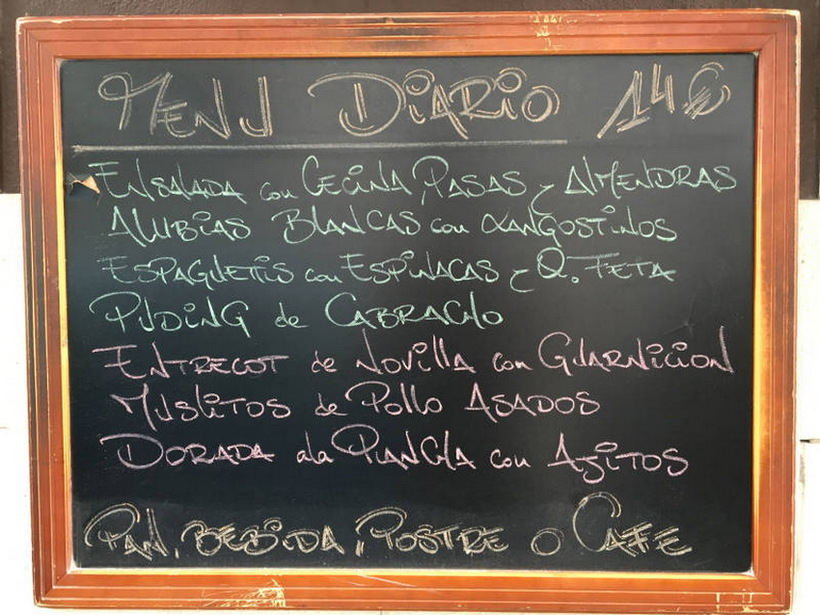 MENU DIARIO 14€
ENSALADA con CECINA, PASAS y ALMENDRAS
ALUBIAS BLANCAS con LANGOSTINOS
ESPAGUETIS con ESPINACAS y Q. FETA
PUDING de CABRACHO
ENTRECOT de NOVILLA con GUARNICION
MUSLITOS de POLLO ASADOS
DORADA a la PLANCHA con AJITOS
PAN, BEBIDA, POSTRE O CAFE